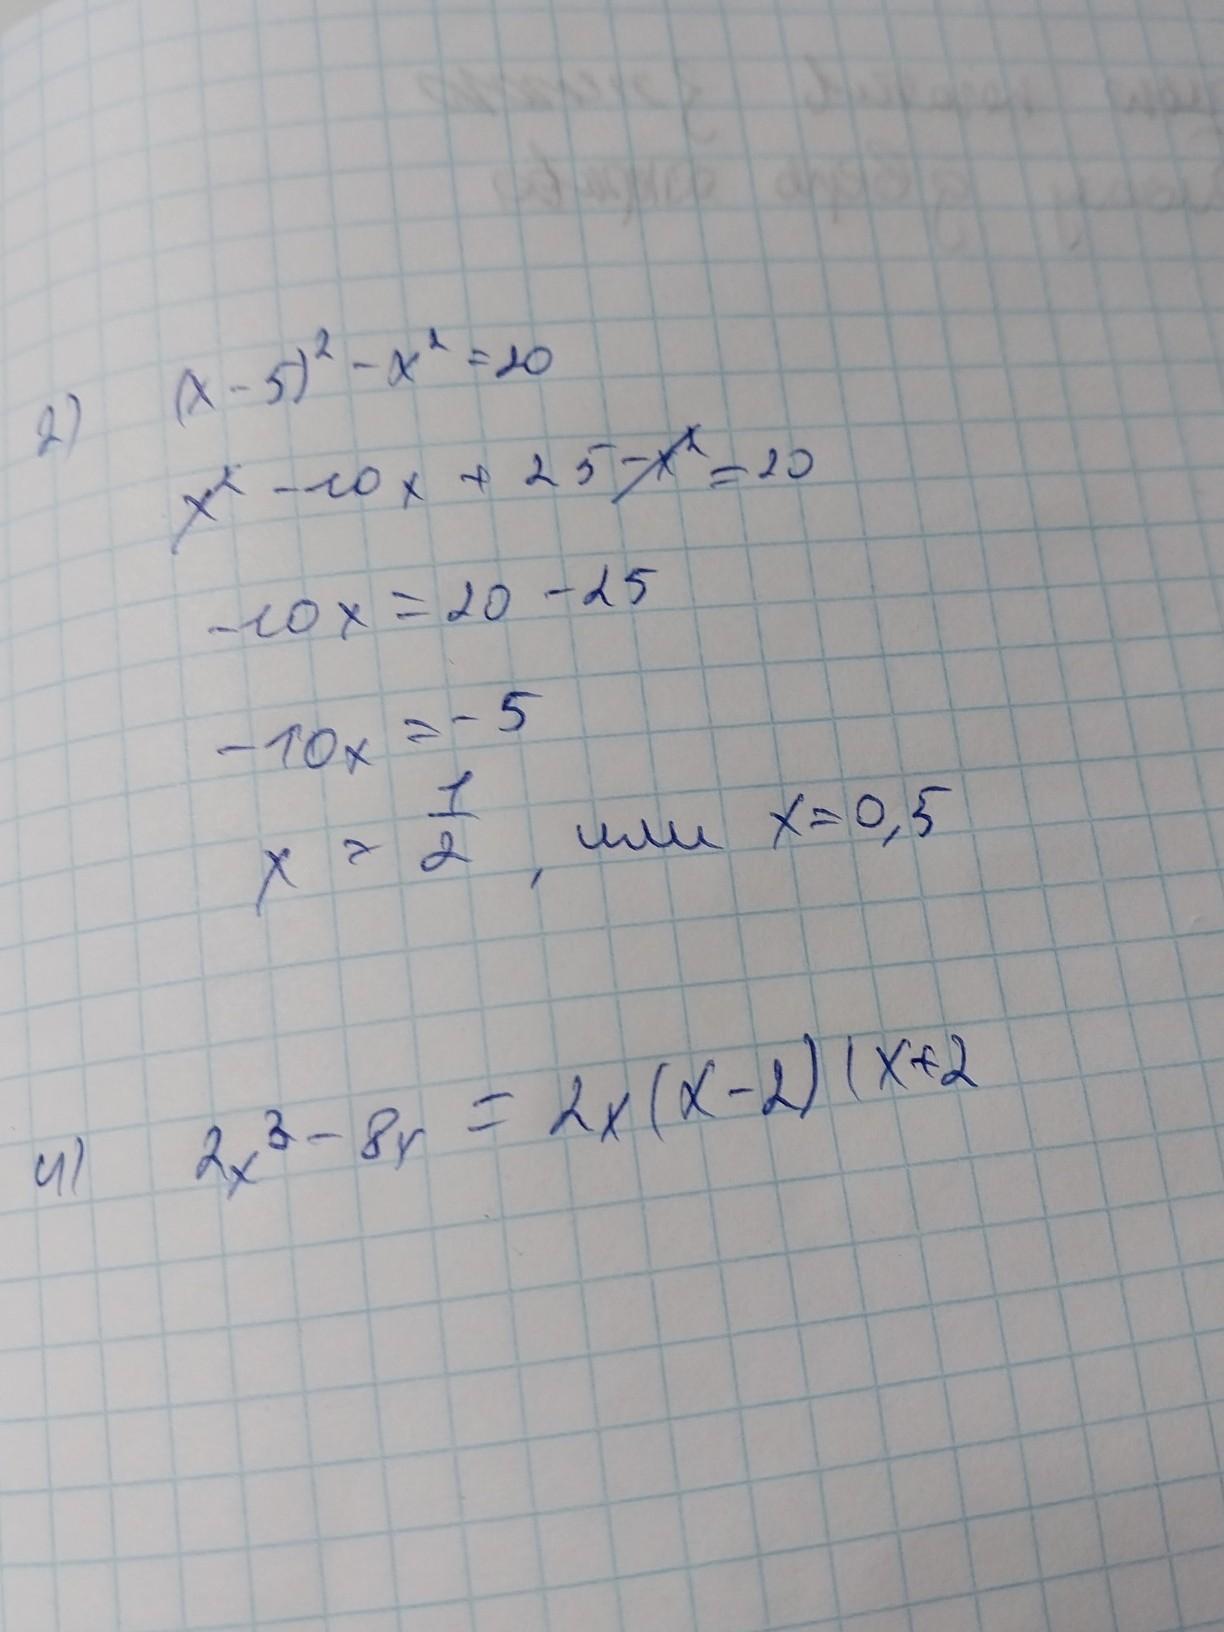 2) (x-5)² - x² = 20
x² - 10x + 25 - x² = 20
-10x = 20 - 25
-10x = -5
x = 1/2, или x = 0,5
4) 2x³ - 8x = 2x(x-2)(x+2